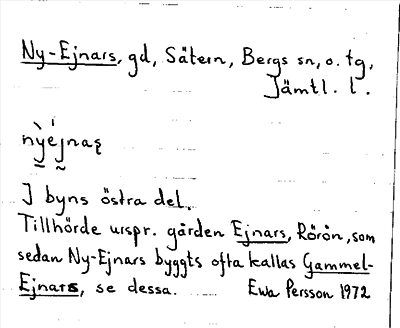 Ny-Ejnars, gd, Såtern, Bergs sn, o. tg,
Jämtl. l.
nỳéjnaʂ
I byns östra del.
Tillhörde urspr. gården Ejnars, Rörön, som
sedan Ny-Ejnars byggts ofta kallas Gammel-
Ejnars, se dessa. Ewa Persson 1972